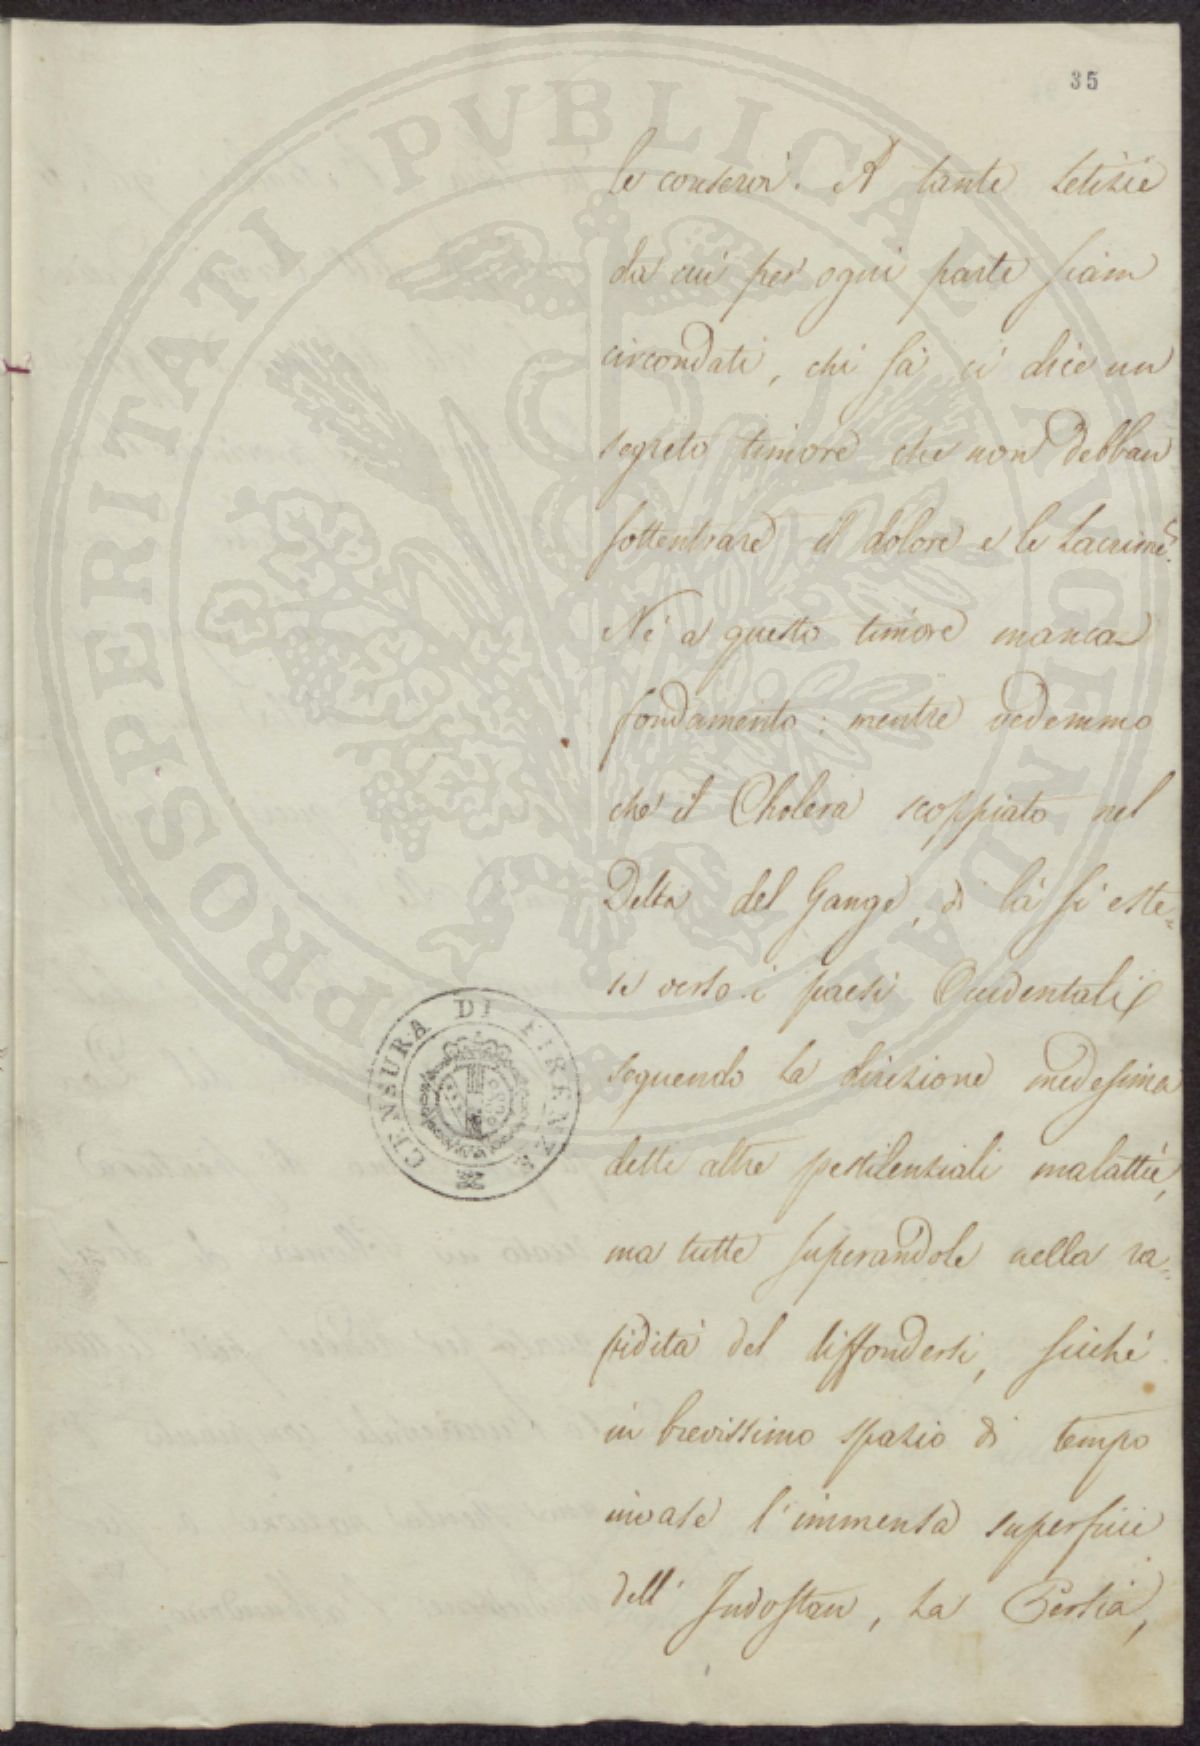 35
le conservi. A tante letizie
da cui per ogni parte siam
circondati, chi sà ci dice un
segreto timore che non debban
sottentrare il dolore e le lacrime?
Nè a questo timore manca
fondamento: mentre vedemmo
che il Cholera scoppiato nel
Delta del Gange, di là si este=
se verso i paesi Occidentali
seguendo la direzione medesima
delle altre pestilenziali malattie,
ma tutte superandole nella ra=
pidità del diffondersi, sicchè
in brevissimo spazio di tempo
invase l'immensa superficie
dell'Indostan, la Persia,
CENSURA DI FIRENZE
PROSPERITATI PUBLICAE AUGENDAE